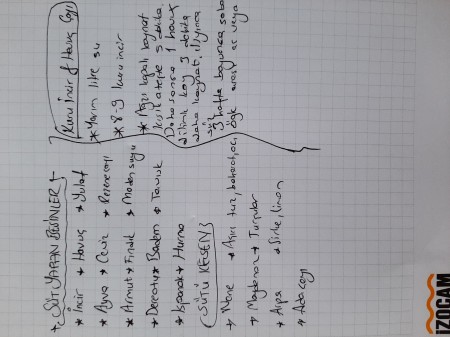 * SÜT YAPAN BESİNLER *
* İncir * Havuç * Yulaf
* Ayva * Ceviz * Rezene çayı
* Armut * Fındık * Maden suyu
* Dereotu * Badem * Tavuk
* Ispanak * Hurma
SÜTÜ KESEN
* Nane * Aşırı tuz, baharat, acı,
* Maydanoz * Turşular
* Arpa * Sirke, limon
* Adaçayı
Kuru İncir & Havuç Çayı
* Yarım litre su
* 8-9 kuru incir
* Ağzı kapalı kaynat
kısık ateşte 5 dakika.
Daha sonra 1 havuç
dilimle koy 3 dakika
daha kaynat. Ilıyınca
süz
3 hafta boyunca sabah
öğle arası aç veya
İZOCAM